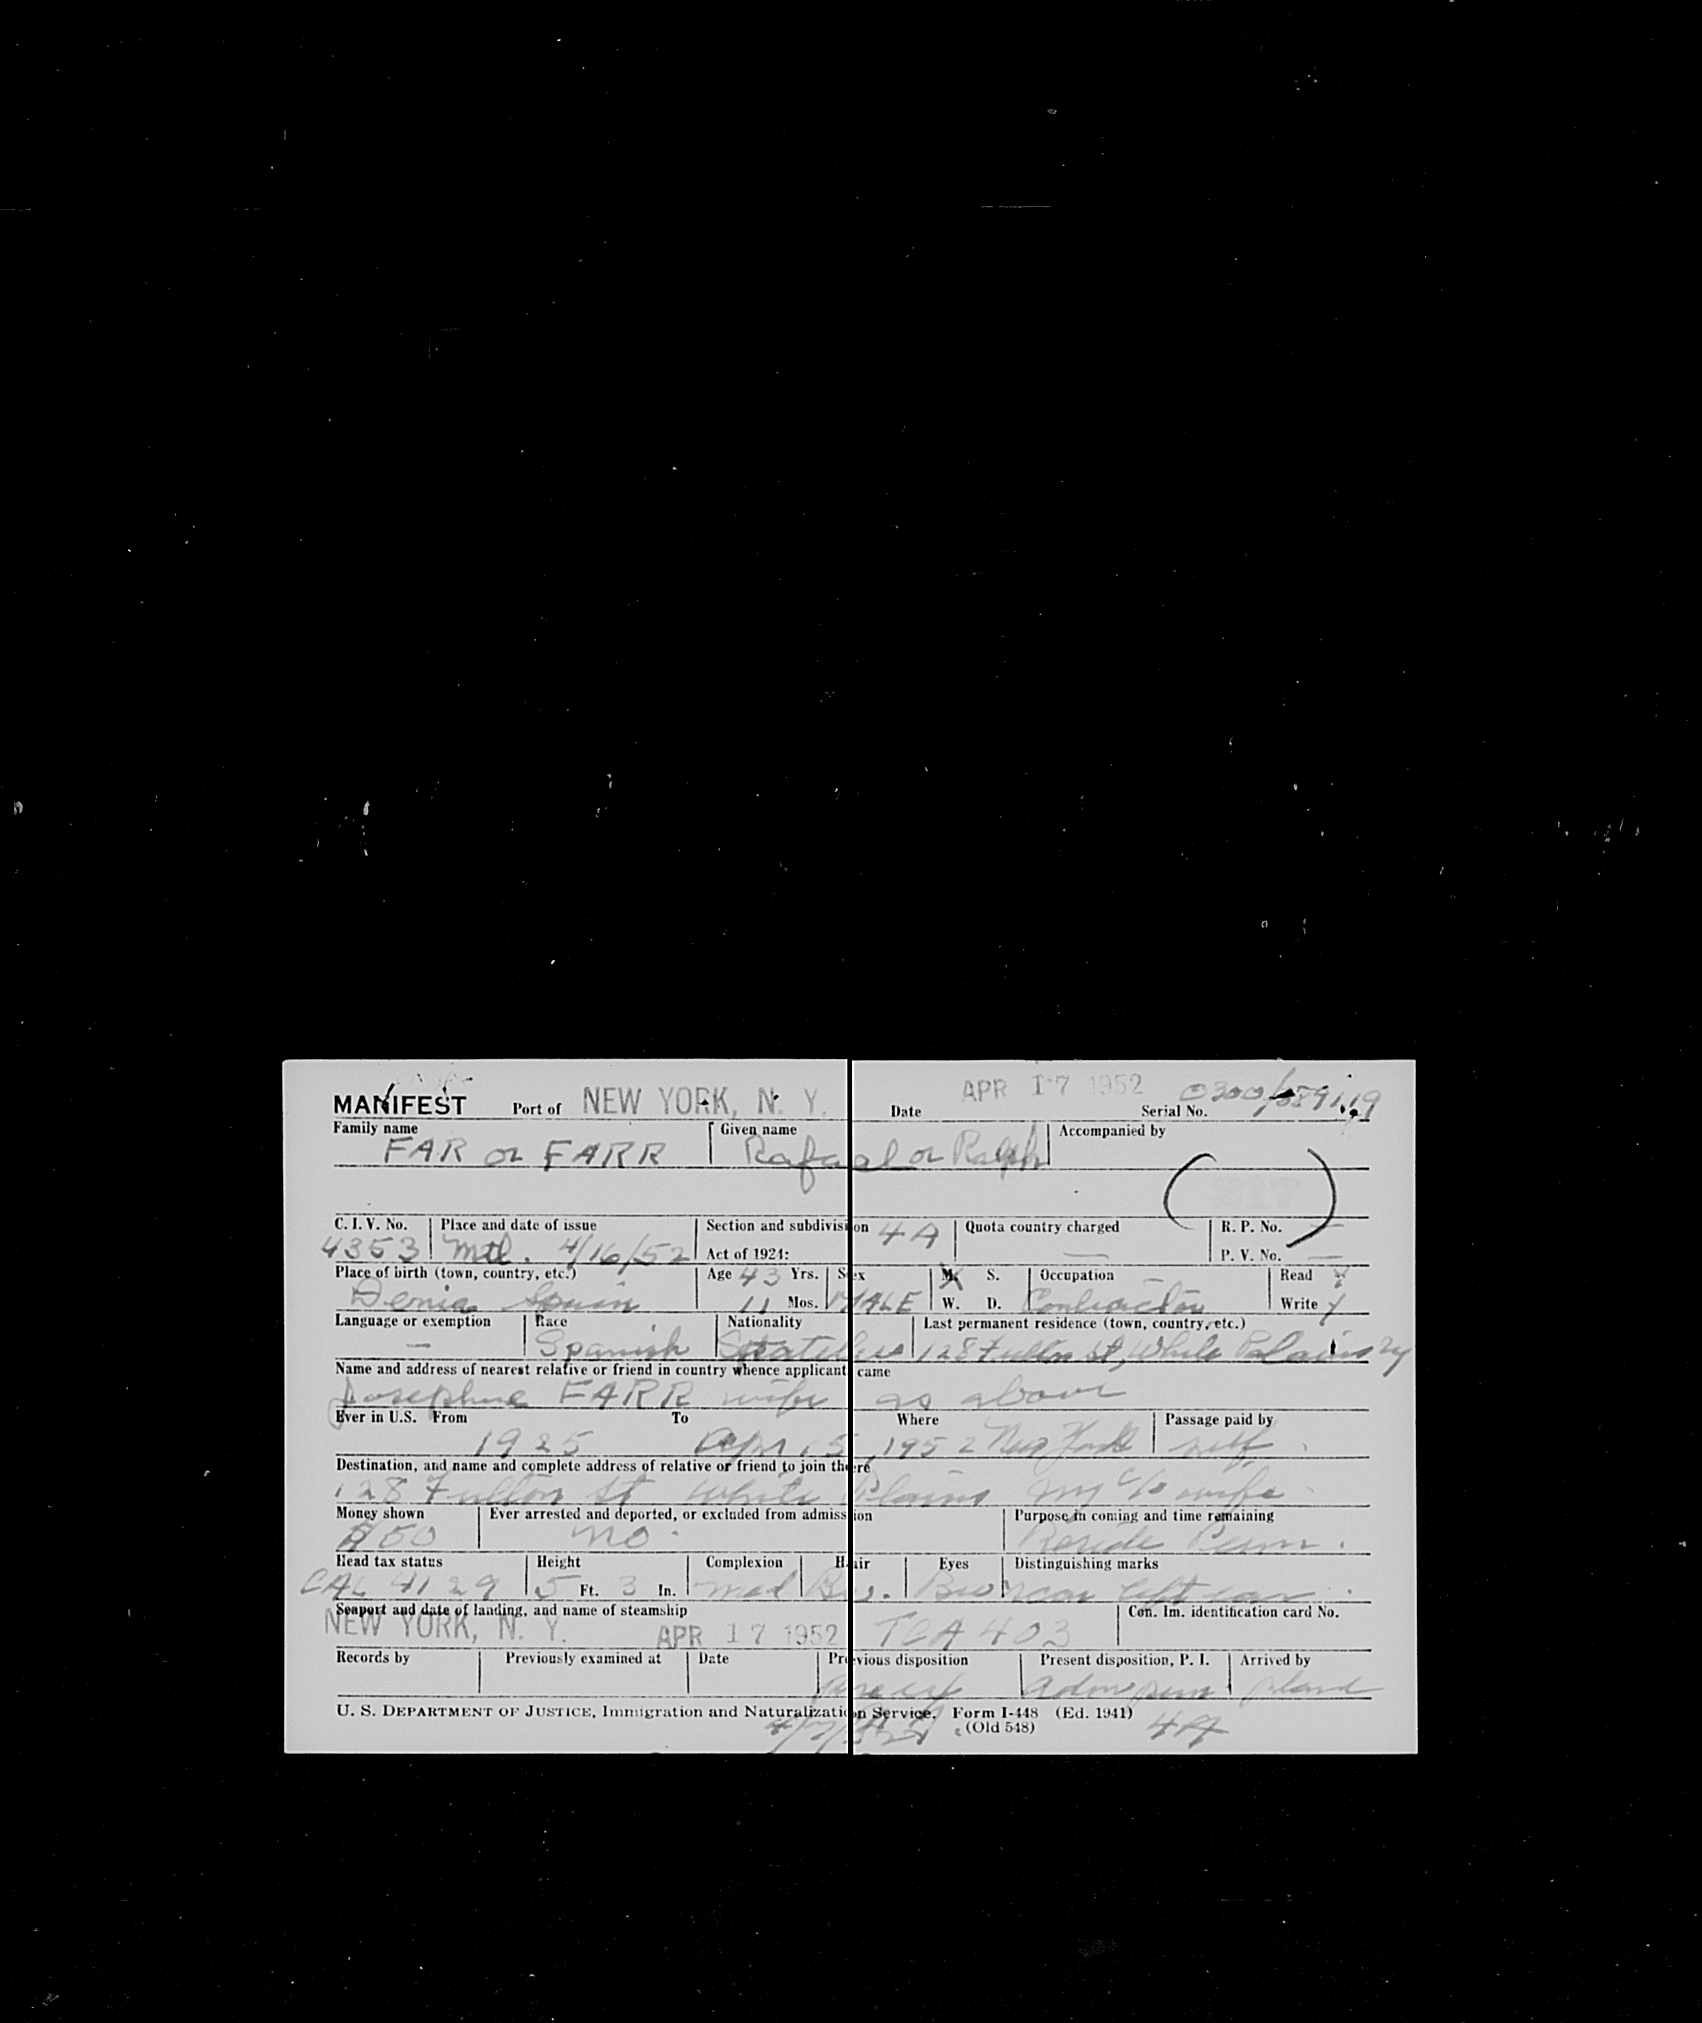 MANIFEST Port of NEW YORK, N. Y. Date APR 17 1952 Serial No.
Family name FAR or FARR Given name Rafael or Ralph Accompanied by
C. I. V. No. 4353 Place and date of issue Mtl. 4/16/52 Section and subdivision 4A Act of 1924: Quota country charged — R. P. No. — P. V. No. —
Place of birth (town, country, etc.) Denia Spain Age 43 Yrs. 11 Mos. Sex MALE M. S. W. D. Occupation Contractor Read Y Write Y
Language or exemption — Race Spanish Nationality Stateless Last permanent residence (town, country, etc.) 128 Fulton St, White Plains NY
Name and address of nearest relative or friend in country whence applicant came
Josephine FARR wife as above
Ever in U.S. From 1925 To Apr. 5, 1952 Where New York Passage paid by self.
Destination, and name and complete address of relative or friend to join there
128 Fulton St White Plains NY c/o wife
Money shown $50 Ever arrested and deported, or excluded from admission No. Purpose in coming and time remaining Reside Perm.
Head tax status CAL 4129 Height 5 Ft. 3 In. Complexion Med Hair Bro. Eyes Bro Distinguishing marks scar left ear
Seaport and date of landing, and name of steamship
NEW YORK, N. Y. APR 17 1952 TCA 403 Con. Im. identification card No.
Records by Previously examined at Date Previous disposition Present disposition, P. I. Adm perm Arrived by plane
U. S. DEPARTMENT OF JUSTICE, Immigration and Naturalization Service. Form I-448 (Ed. 1941)
(Old 548) 4A